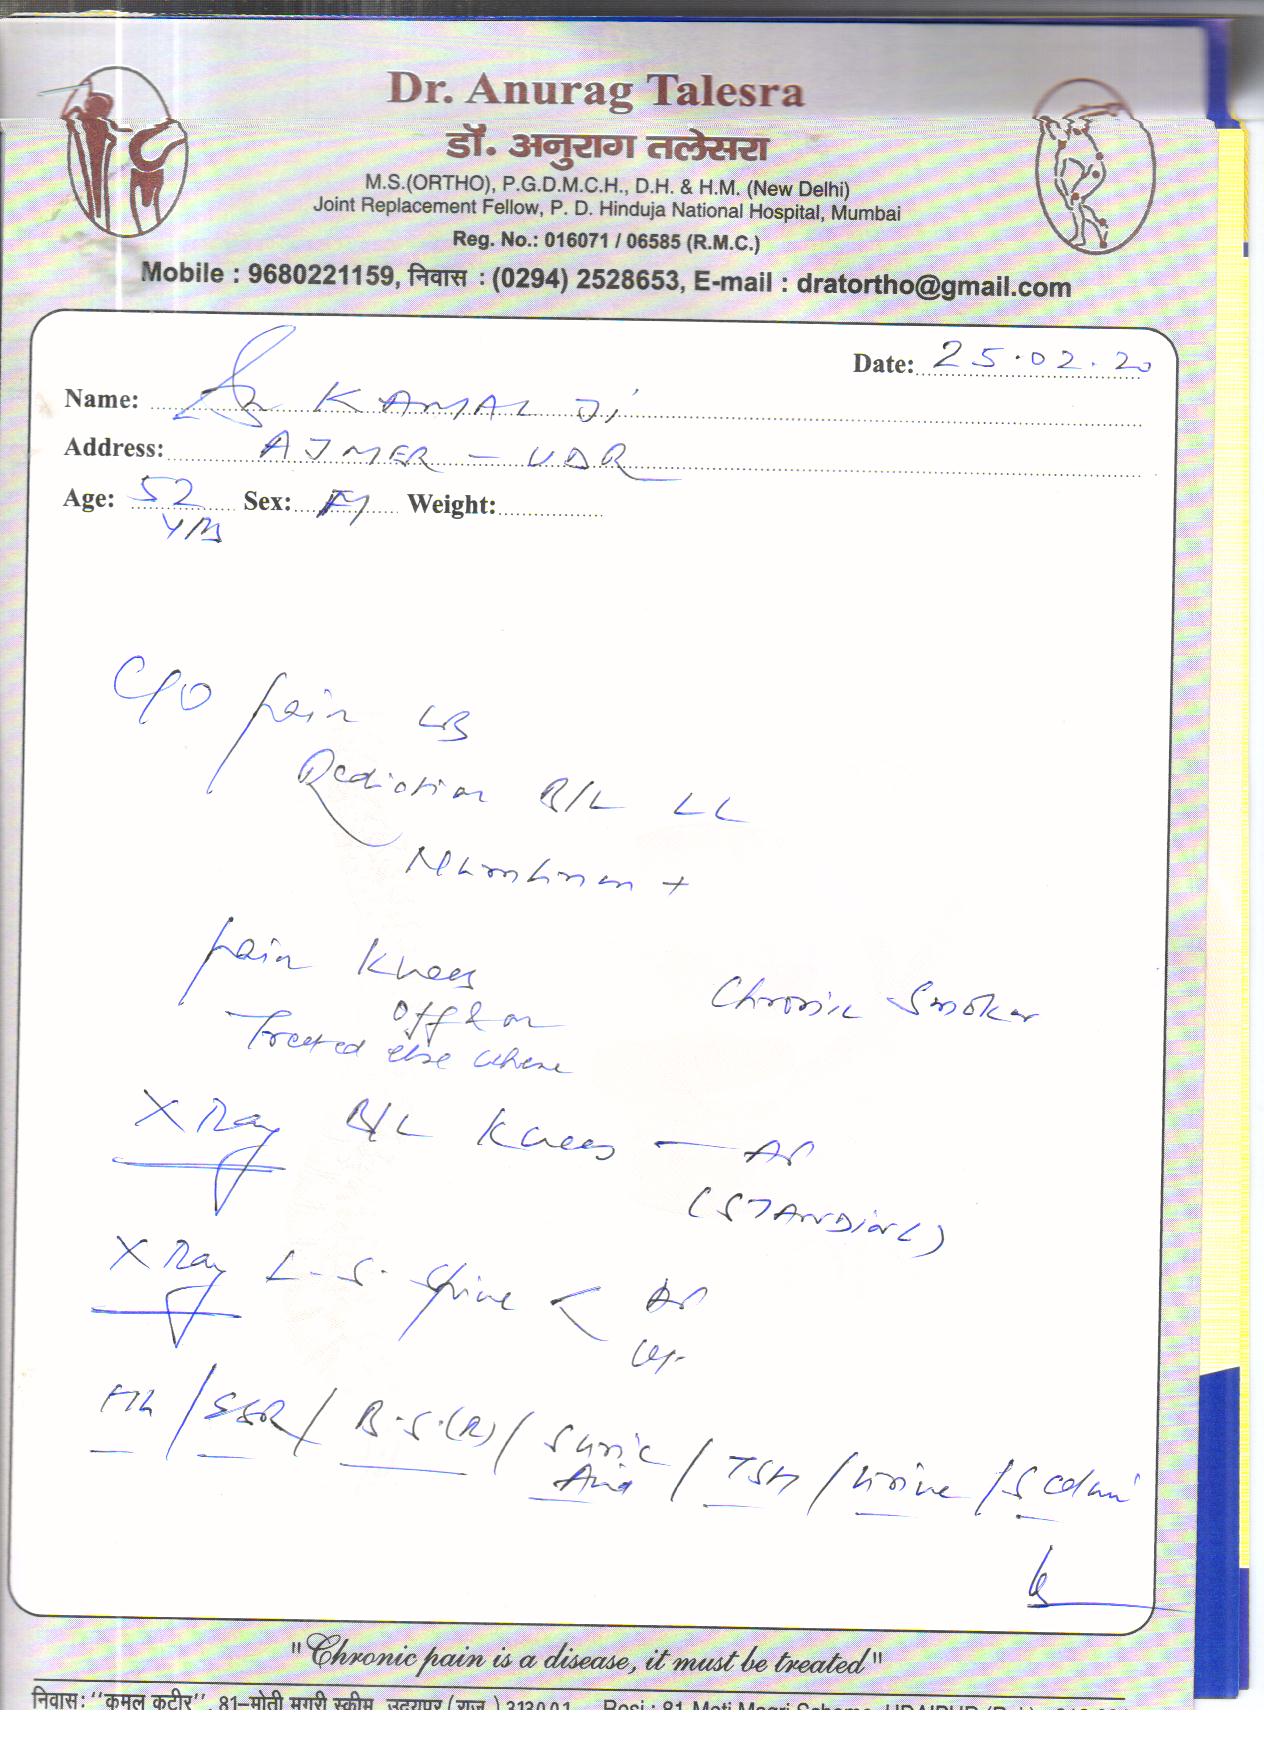 Dr. Anurag Talesra
डॉ. अनुराग तलेसरा
M.S.(ORTHO), P.G.D.M.C.H., D.H. & H.M. (New Delhi)
Joint Replacement Fellow, P. D. Hinduja National Hospital, Mumbai
Reg. No.: 016071 / 06585 (R.M.C.)
Mobile : 9680221159, निवास : (0294) 2528653, E-mail : dratortho@gmail.com
Date: 25.02.20
Name: KAMAL Ji
Address: AJMER - UDR
Age: 52 Sex: M Weight:
Yrs
C/O pain LB
Radiation B/L LL
Numbness +
pain Knees
Off & on
Chronic Smoker
Treated else where
X Ray B/L Knees — AP
(STANDING)
X Ray L-S. Spine < AP
/ ESR / B.S.(R) / S uric / TSH / Urine / S
Acid
"Chronic pain is a disease, it must be treated"
निवास: "कमल कुटीर", 81-मोती मगरी स्कीम, उदयपुर (राज.) 313001 Resi : 81 Moti Magri Scheme, UDAIPUR